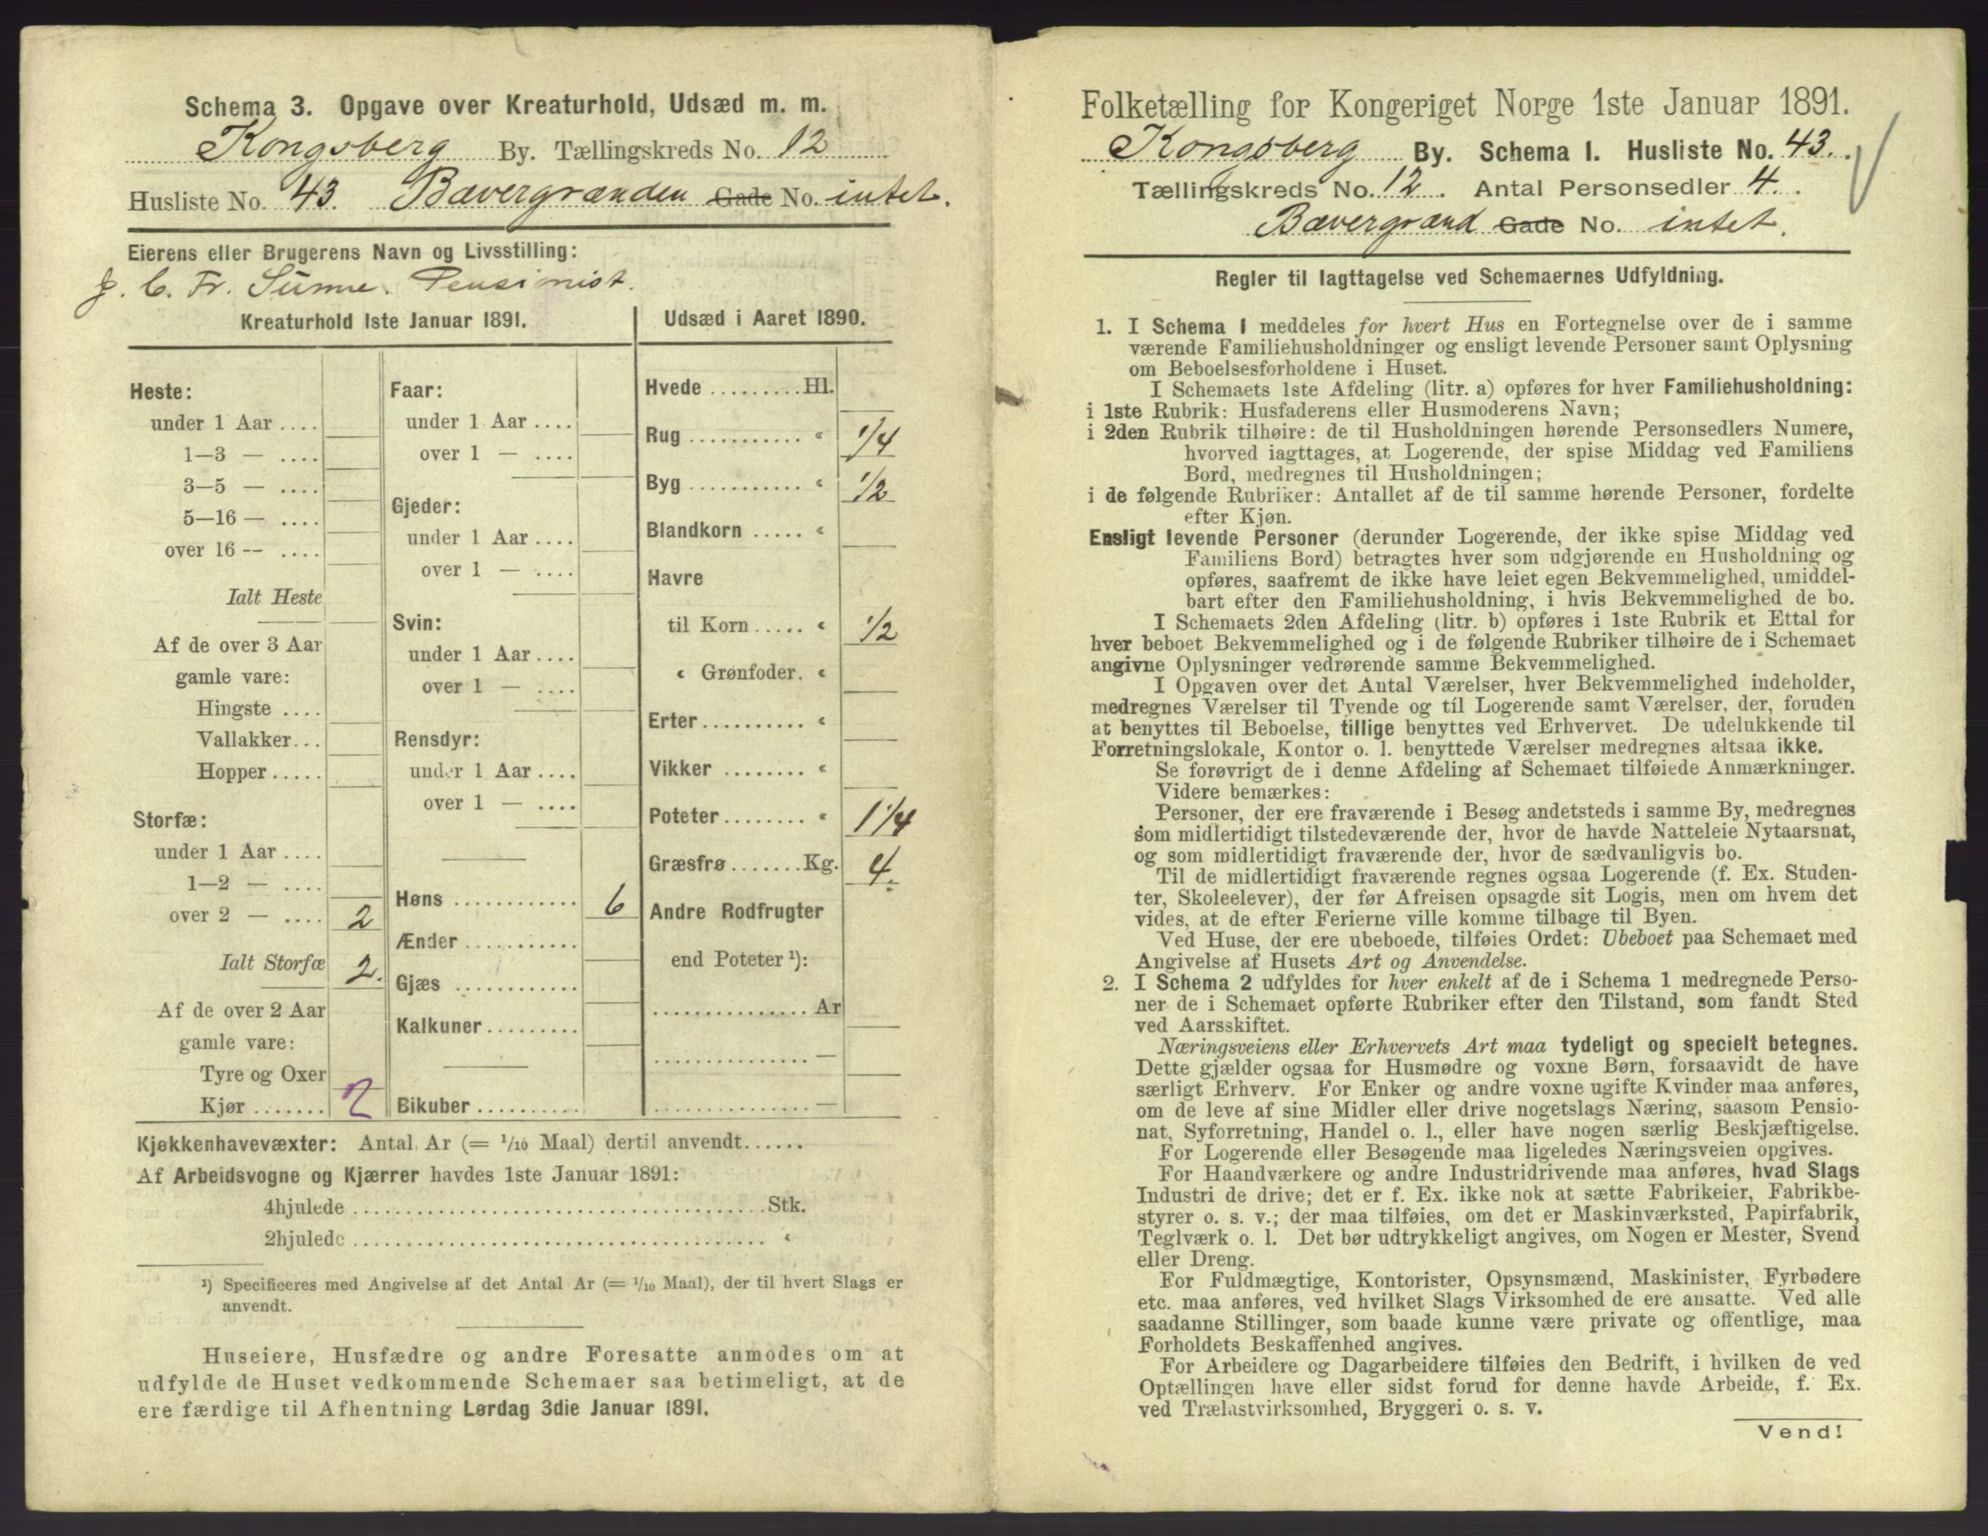 Schema 3. Opgave over Kreaturhold, Udsæd m. m.
Kongsberg By. Tællingskreds No. 12
Husliste No. 43. Bævergrænden Gade No. intet.
Eierens eller Brugerens Navn og Livsstilling:
J. C. Fr. Sunne. Pensionist.
Kreaturhold 1ste Januar 1891.
Heste:
under 1 Aar ....
1—3 — ....
3—5 — ....
5—16 — ....
over 16 -- ....
Ialt Heste
Af de over 3 Aar
gamle vare:
Hingste ....
Vallakker...
Hopper.....
Storfæ:
under 1 Aar ....
1—2 — ....
over 2 — .... 2
Ialt Storfæ 2.
Af de over 2 Aar
gamle vare:
Tyre og Oxer
Kjør ....... 2
Faar:
under 1 Aar ....
over 1 — ....
Gjeder:
under 1 Aar ....
over 1 — ....
Svin:
under 1 Aar ....
over 1 — ....
Rensdyr:
under 1 Aar ....
over 1 — ....
Høns ........... 6
Ænder ...........
Gjæs ...........
Kalkuner.........
Bikuber..........
Udsæd i Aaret 1890.
Hvede .........Hl.
Rug ........... « 1/4
Byg ........... « 1/2
Blandkorn ..... «
Havre
til Korn ..... « 1/2
« Grønfoder. «
Erter.......... «
Vikker ........ «
Poteter........ « 1 1/4
Græsfrø.......Kg. 4.
Andre Rodfrugter
end Poteter ¹):
............... Ar
............... —
............... —
Kjøkkenhavevæxter: Antal Ar (= 1/10 Maal) dertil anvendt......
Af Arbeidsvogne og Kjærrer havdes 1ste Januar 1891:
4hjulede ........................................Stk.
2hjulede ........................................ «
¹) Specificeres med Angivelse af det Antal Ar (= 1/10 Maal), der til hvert Slags er
anvendt.
Huseiere, Husfædre og andre Foresatte anmodes om at
udfylde de Huset vedkommende Schemaer saa betimeligt, at de
ere færdige til Afhentning Lørdag 3die Januar 1891.
Folketælling for Kongeriget Norge 1ste Januar 1891.
Kongsberg By. Schema 1. Husliste No. 43.
Tællingskreds No. 12. Antal Personsedler 4.
Bævergrænd Gade No. intet.
Regler til Iagttagelse ved Schemaernes Udfyldning.
1. I Schema 1 meddeles for hvert Hus en Fortegnelse over de i samme
værende Familiehusholdninger og ensligt levende Personer samt Oplysning
om Beboelsesforholdene i Huset.
I Schemaets 1ste Afdeling (litr. a) opføres for hver Familiehusholdning:
i 1ste Rubrik: Husfaderens eller Husmoderens Navn;
i 2den Rubrik tilhøire: de til Husholdningen hørende Personsedlers Numere,
hvorved iagttages, at Logerende, der spise Middag ved Familiens
Bord, medregnes til Husholdningen;
i de følgende Rubriker: Antallet af de til samme hørende Personer, fordelte
efter Kjøn.
Ensligt levende Personer (derunder Logerende, der ikke spise Middag ved
Familiens Bord) betragtes hver som udgjørende en Husholdning og
opføres, saafremt de ikke have leiet egen Bekvemmelighed, umiddel-
bart efter den Familiehusholdning, i hvis Bekvemmelighed de bo.
I Schemaets 2den Afdeling (litr. b) opføres i 1ste Rubrik et Ettal for
hver beboet Bekvemmelighed og i de følgende Rubriker tilhøire de i Schemaet
angivne Oplysninger vedrørende samme Bekvemmelighed.
I Opgaven over det Antal Værelser, hver Bekvemmelighed indeholder,
medregnes Værelser til Tyende og til Logerende samt Værelser, der, foruden
at benyttes til Beboelse, tillige benyttes ved Erhvervet. De udelukkende til
Forretningslokale, Kontor o. l. benyttede Værelser medregnes altsaa ikke.
Se forøvrigt de i denne Afdeling af Schemaet tilføiede Anmærkninger.
Videre bemærkes:
Personer, der ere fraværende i Besøg andetsteds i samme By, medregnes
som midlertidigt tilstedeværende der, hvor de havde Natteleie Nytaarsnat,
og som midlertidigt fraværende der, hvor de sædvanligvis bo.
Til de midlertidigt fraværende regnes ogsaa Logerende (f. Ex. Studen-
ter, Skoleelever), der før Afreisen opsagde sit Logis, men om hvem det
vides, at de efter Ferierne ville komme tilbage til Byen.
Ved Huse, der ere ubeboede, tilføies Ordet: Ubeboet paa Schemaet med
Angivelse af Husets Art og Anvendelse.
2. I Schema 2 udfyldes for hver enkelt af de i Schema 1 medregnede Perso-
ner de i Schemaet opførte Rubriker efter den Tilstand, som fandt Sted
ved Aarsskiftet.
Næringsveiens eller Erhvervets Art maa tydeligt og specielt betegnes.
Dette gjælder ogsaa for Husmødre og voxne Børn, forsaavidt de have
særligt Erhverv. For Enker og andre voxne ugifte Kvinder maa anføres,
om de leve af sine Midler eller drive nogetslags Næring, saasom Pensio-
nat, Syforretning, Handel o. l., eller have nogen særlig Beskjæftigelse.
For Logerende eller Besøgende maa ligeledes Næringsveien opgives.
For Haandværkere og andre Industridrivende maa anføres, hvad Slags
Industri de drive; det er f. Ex. ikke nok at sætte Fabrikeier, Fabrikbe-
styrer o. s. v.; der maa tilføies, om det er Maskinværksted, Papirfabrik,
Teglværk o. l. Det bør udtrykkeligt angives, om Nogen er Mester, Svend
eller Dreng.
For Fuldmægtige, Kontorister, Opsynsmænd, Maskinister, Fyrbødere
etc. maa anføres, ved hvilket Slags Virksomhed de ere ansatte. Ved alle
saadanne Stillinger, som baade kunne være private og offentlige, maa
Forholdets Beskaffenhed angives.
For Arbeidere og Dagarbeidere tilføies den Bedrift, i hvilken de ved
Optællingen have eller sidst forud for denne havde Arbeide, f. Ex.
ved Trælastvirksomhed, Bryggeri o. s. v.
Vend!